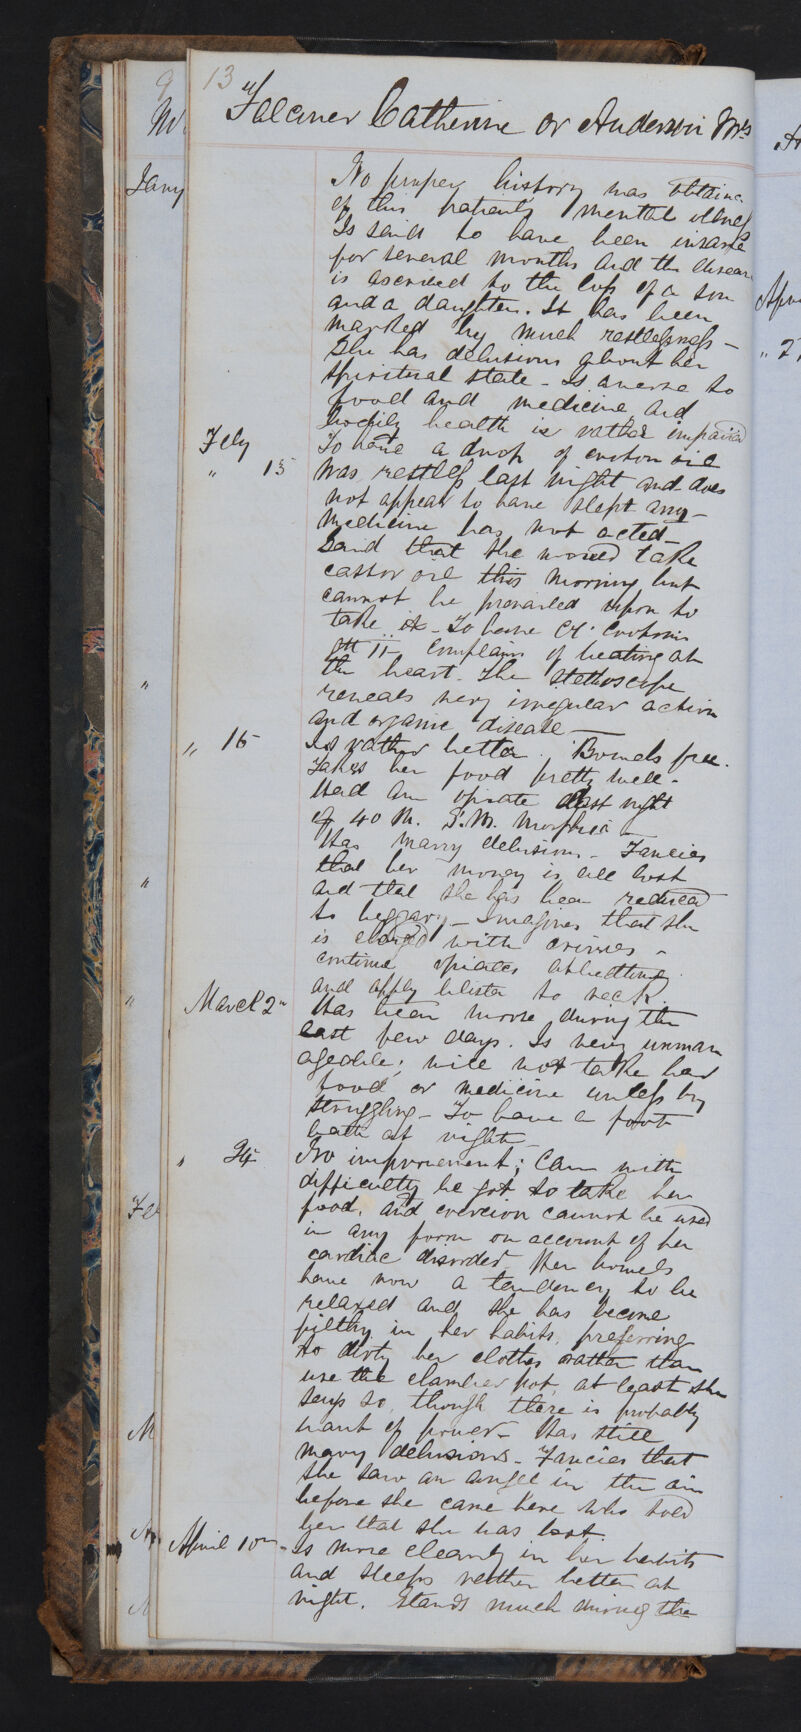 13
Falconer Catherine or Anderson Mrs
No proper history was obtaine
of this patients mental illness
Is said to have been insane
for several months and the disease
is ascribed to the loss of a son
and a daughter. It has been
marked by much restlessness –
She has delusions about her
spiritual state – Is averse to
food and medicine and
bodily health is rather impaired
Feby To have a drop of croton oil
" 15 Was restless last night and does
not appear to have slept any –
Medicine has not acted –
Said that she would take
castor oil this morning but
cannot be prevailed upon to
take it – To have Ol. Crotonis
gtt ii Complains of beating at
the heart. The stethoscope
reveals very irregular action
and organic disease –
" 16 Is rather better. Bowels free.
Takes her food pretty well –
Had an opiate last night
of 40 M. S. M. Morphia –
Has many delusions – Fancies
that her money is all lost
and that she has been reduced
to beggary – Imagines that she
is charged with crimes –
continue opiates at bedtime
and apply blister to neck.
March 2nd Has been worse during the
last few days. Is very unman
ageable; will not take her
food or medicine unless by
struggling – To have a foot
bath at night –
" 24 No improvement; Can with
difficulty be got to take her
food, and coercion cannot be used
in any form on account of her
cardiac disorder. Her bowels
have now a tendency to be
relaxed and she has become
filthy in her habits, preferring
to dirty her clothes rather than
use the chamber pot, at least she
says so, though there is probably
want of power – Has still
many delusions – Fancies that
she saw an angel in the air
before she came here who told
her that she was lost.
April 10th – Is more cleanly in her habits
and sleeps rather better at
night. Stands much during the
9
Jany